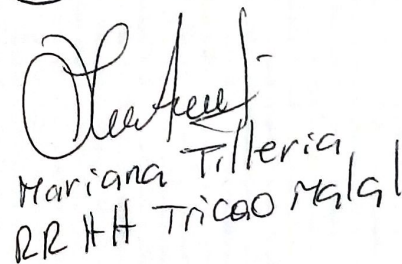 Mariana Tilleria
RR HH Tricao Malal